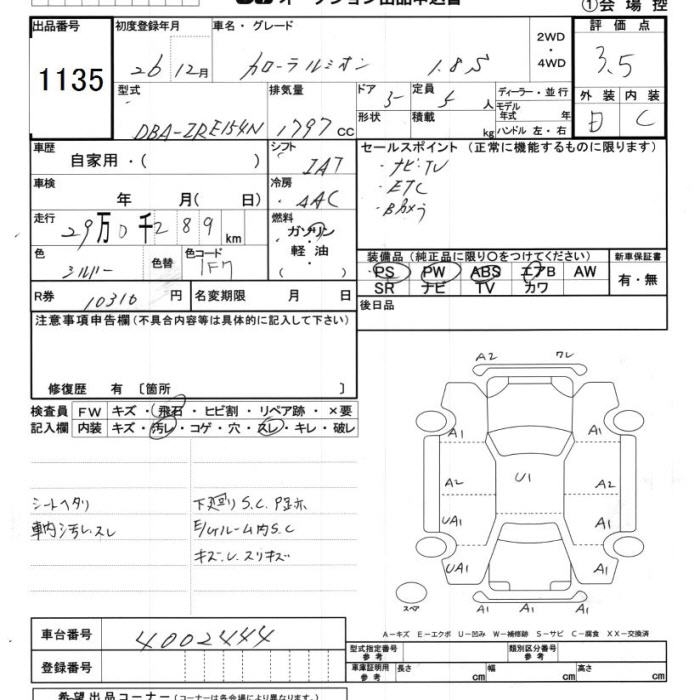 オークション出品申込書
①会場控
出品番号
1135
初度登録年月
26 12月
車名・グレード
カローラルミオン 1.8S
2WD
・
4WD
評価点
3.5
型式
DBA-ZRE154N
排気量
1797 cc
ドア 5
定員 5 人
形状
積載 kg
ディーラー・並行
モデル
年式 年
ハンドル 左・右
外装 内装
C
車歴
自家用・( )
シフト
IAT
セールスポイント (正常に機能するものに限ります)
・ナビ・TV
・ETC
・Bカメラ
車検
年 月( 日)
冷房
AAC
走行
29万0千289 km
燃料
ガソリン
軽油
( )
色
シルバー
色替
色コード
1F7
装備品 (純正品に限り〇をつけてください)
PS PW ABS エアB AW
SR ナビ TV カワ
新車保証書
有・無
R券
10310 円
名変期限 月 日
後日品
注意事項申告欄 (不具合内容等は具体的に記入して下さい)
修復歴 有 〔箇所 〕
検査員
記入欄
FW キズ・飛石・ヒビ割・リペア跡・×要
内装 キズ・汚レ・コゲ・穴・スレ・キレ・破レ
シートヘタリ
車内汚レ.スレ
下廻り S.C. P歪ホ
E/Gルーム内 S.C
キズ.U.スリキズ
A2 ワレ
A1 A1
A2 U1 A2
UA1 A1
UA1 A1
A1 A1 A1
スペア
A-キズ E-エクボ U-凹み W-補修跡 S-サビ C-腐食 XX-交換済
車台番号
4002444
登録番号
型式指定番号
参考
類別区分番号
参考
車庫証明用
参考
長さ cm 幅 cm 高さ cm
希望出品コーナー (コーナーは各会場により異なります。)